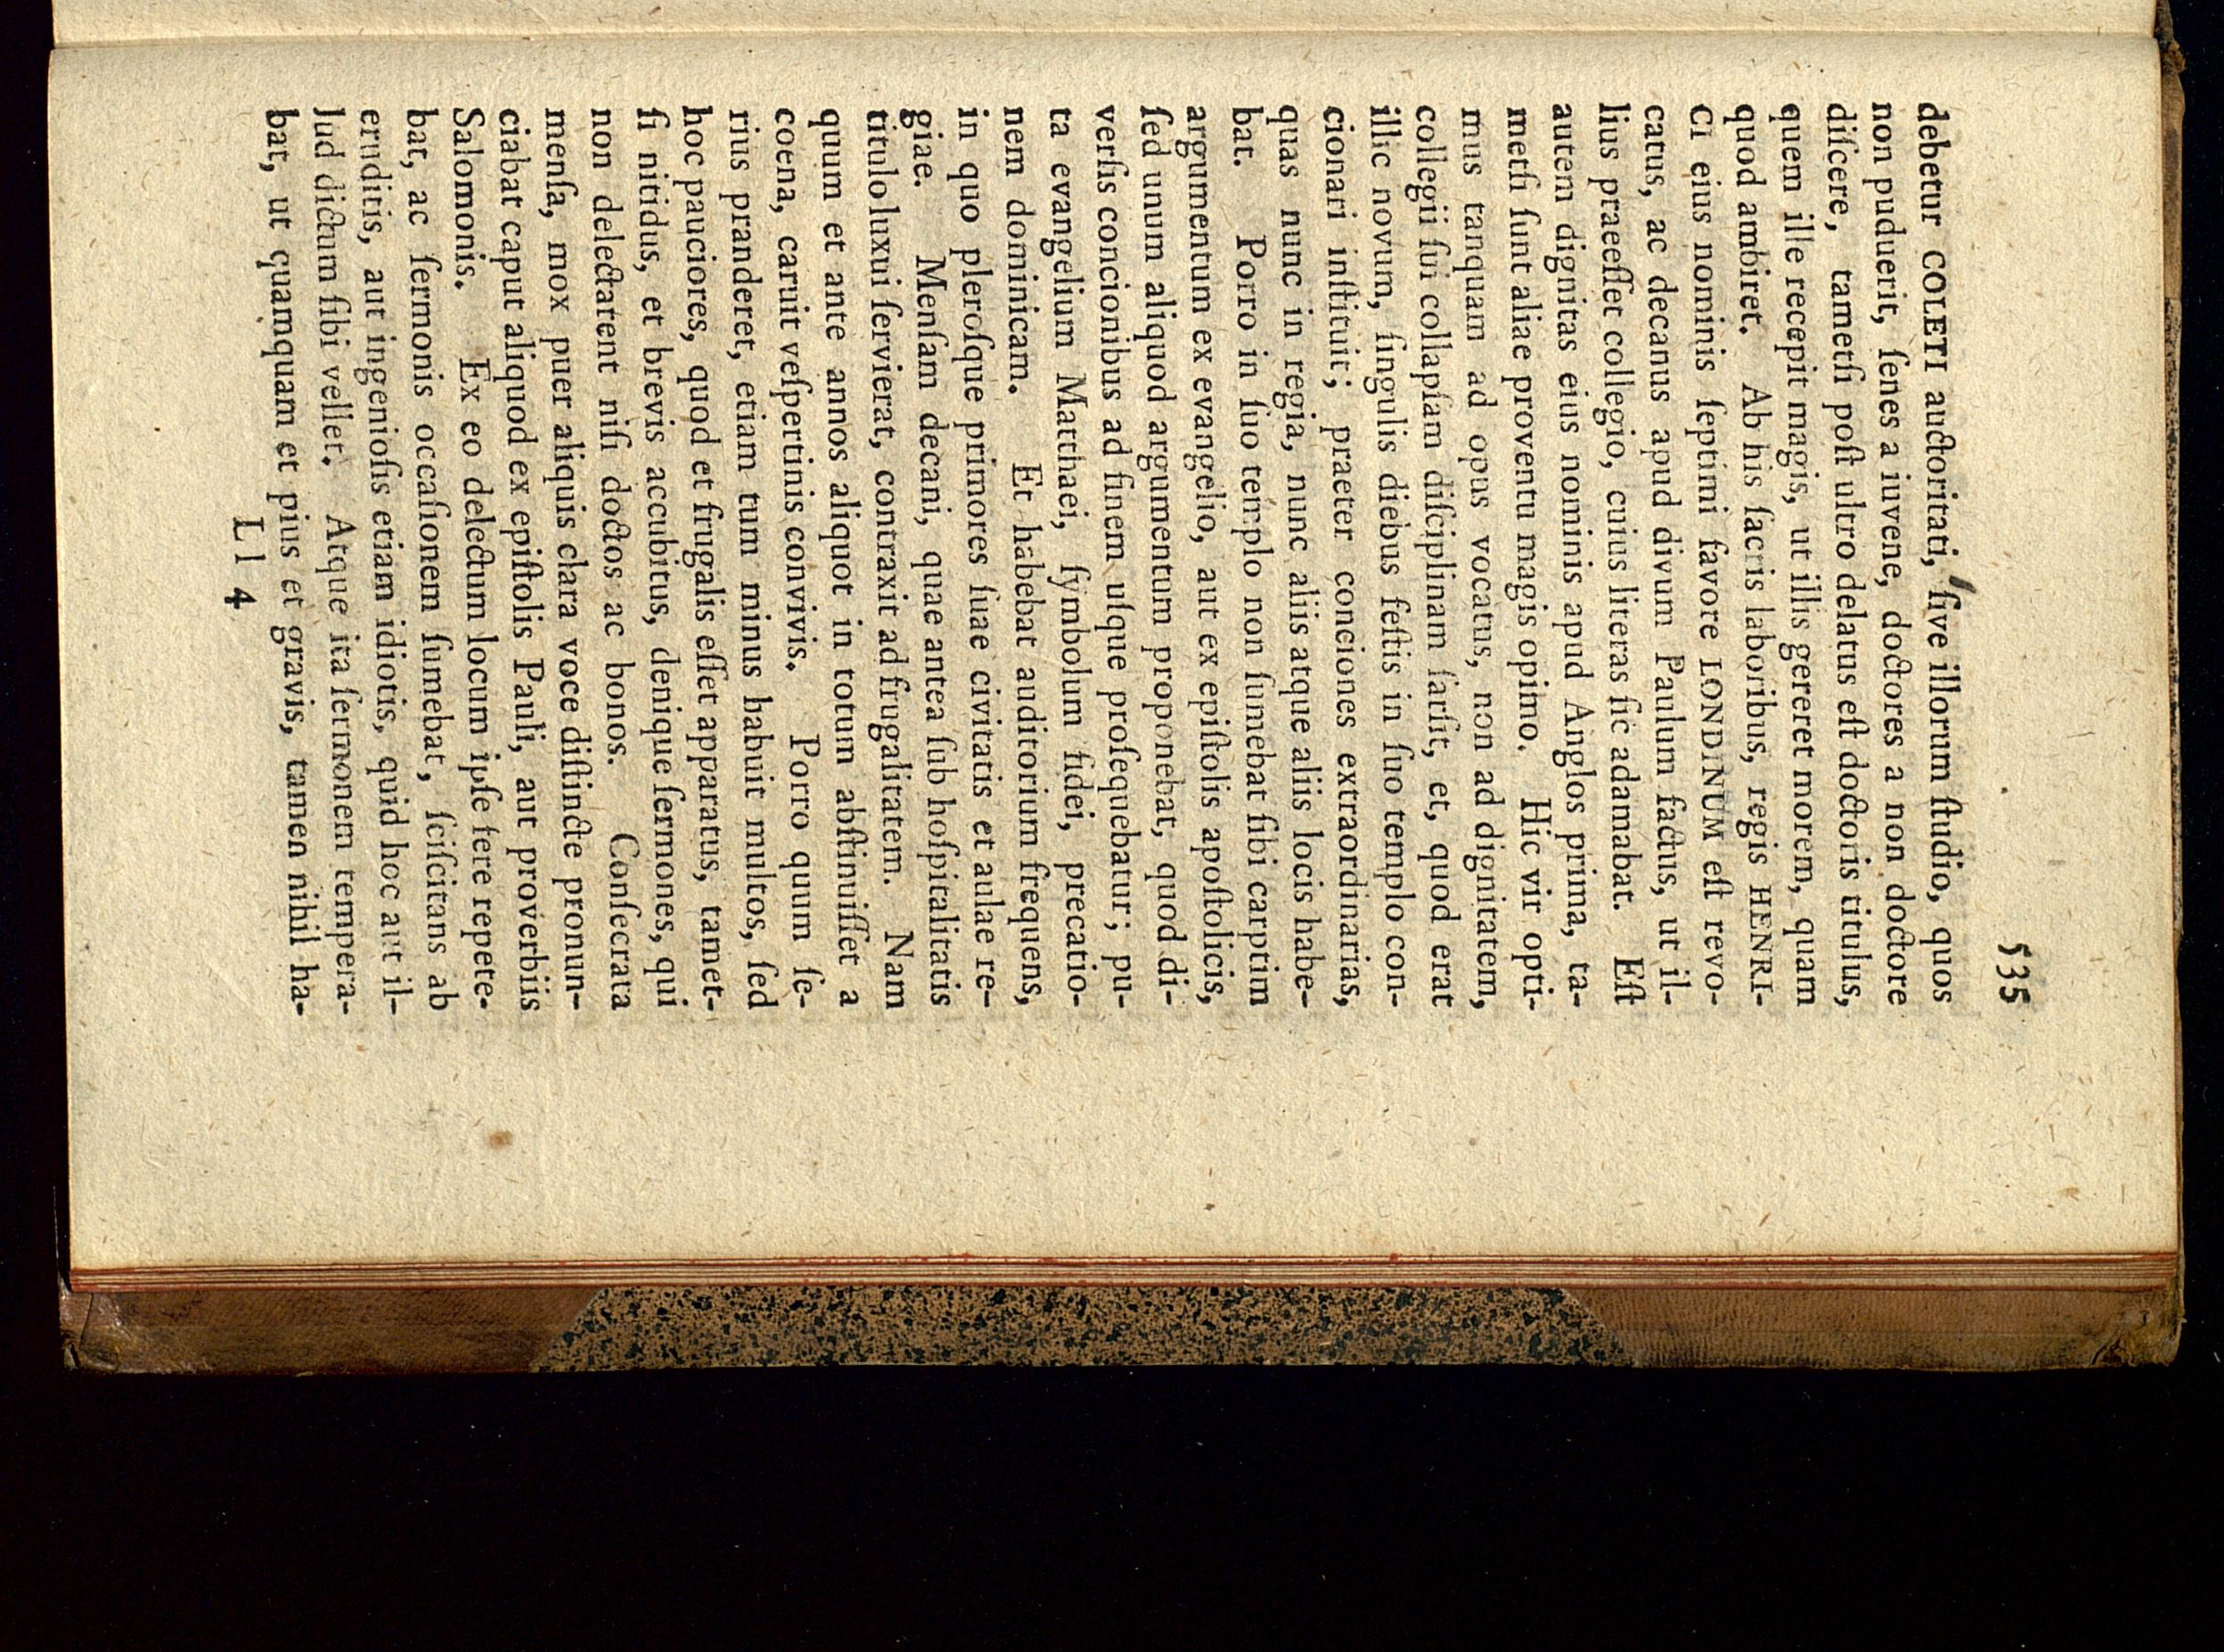 535
debetur COLETI auctoritati, ſive illorum ſtudio, quos
non puduerit, ſenes a iuvene, doctores a non doctore
diſcere, tametſi poſt ultro delatus eſt doctoris titulus,
quem ille recepit magis, ut illis gereret morem, quam
quod ambiret. Ab his ſacris laboribus, regis HENRI-
CI eius nominis ſeptimi favore LONDINUM eſt revo-
catus, ac decanus apud divum Paulum factus, ut il-
lius praeeſſet collegio, cuius literas ſic adamabat. Eſt
autem dignitas eius nominis apud Anglos prima, ta-
metſi ſunt aliae proventu magis opimo. Hic vir opti-
mus tanquam ad opus vocatus, non ad dignitatem,
collegii ſui collapſam diſciplinam ſarſit, et, quod erat
illic novum, ſingulis diebus feſtis in ſuo templo con-
cionari inſtituit; praeter conciones extraordinarias,
quas nunc in regia, nunc aliis atque aliis locis habe-
bat. Porro in ſuo templo non ſumebat ſibi carptim
argumentum ex evangelio, aut ex epiſtolis apoſtolicis,
ſed unum aliquod argumentum proponebat, quod di-
verſis concionibus ad finem uſque proſequebatur; pu-
ta evangelium Matthaei, ſymbolum fidei, precatio-
nem dominicam. Et habebat auditorium frequens,
in quo pleroſque primores ſuae civitatis et aulae re-
giae. Menſam decani, quae antea ſub hoſpitalitatis
titulo luxui ſervierat, contraxit ad frugalitatem. Nam
quum et ante annos aliquot in totum abſtinuiſſet a
coena, caruit veſpertinis convivis. Porro quum ſe-
rius pranderet, etiam tum minus habuit multos, ſed
hoc pauciores, quod et frugalis eſſet apparatus, tamet-
ſi nitidus, et brevis accubitus, denique ſermones, qui
non delectarent niſi doctos ac bonos. Conſecrata
menſa, mox puer aliquis clara voce diſtincte pronun-
ciabat caput aliquod ex epiſtolis Pauli, aut proverbiis
Salomonis. Ex eo delectum locum ipſe fere repete-
bat, ac ſermonis occaſionem ſumebat, ſciſcitans ab
eruditis, aut ingenioſis etiam idiotis, quid hoc aut il-
lud dictum ſibi vellet. Atque ita ſermonem tempera-
bat, ut quamquam et pius et gravis, tamen nihil ha-
Ll 4